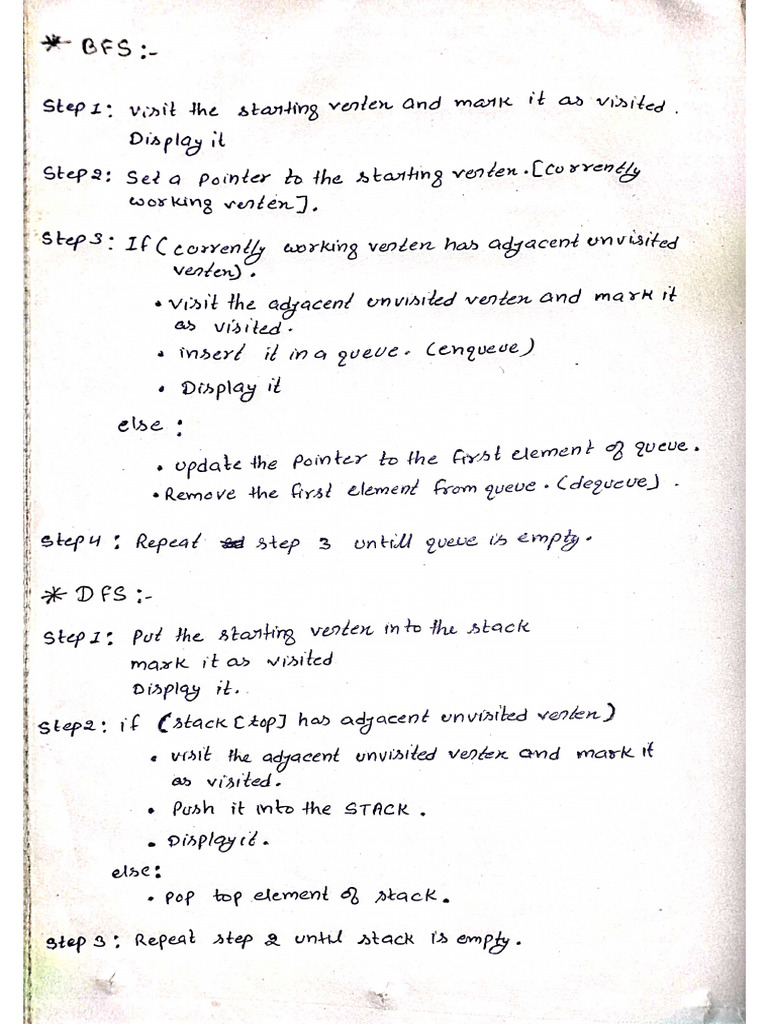 * BFS :-
Step 1: visit the starting verten and mark it as visited.
Display it
Step 2: Set a pointer to the starting verten. [currently
working verten].
Step 3: If (currently working verten has adjacent unvisited
verten).
• visit the adjacent unvisited verten and mark it
as visited.
• insert it in a queue. (enqueue)
• Display it
else :
• update the pointer to the first element of queue.
• Remove the first element from queue. (dequeue).
Step 4 : Repeat step 3 untill queue is empty.
* DFS :-
Step 1: Put the starting verten into the stack
mark it as visited
Display it.
Step 2: if (stack [top] has adjacent unvisited verten)
• visit the adjacent unvisited verten and mark it
as visited.
• Push it into the STACK.
• Display it.
else:
• pop top element of stack.
Step 3: Repeat step 2 until stack is empty.